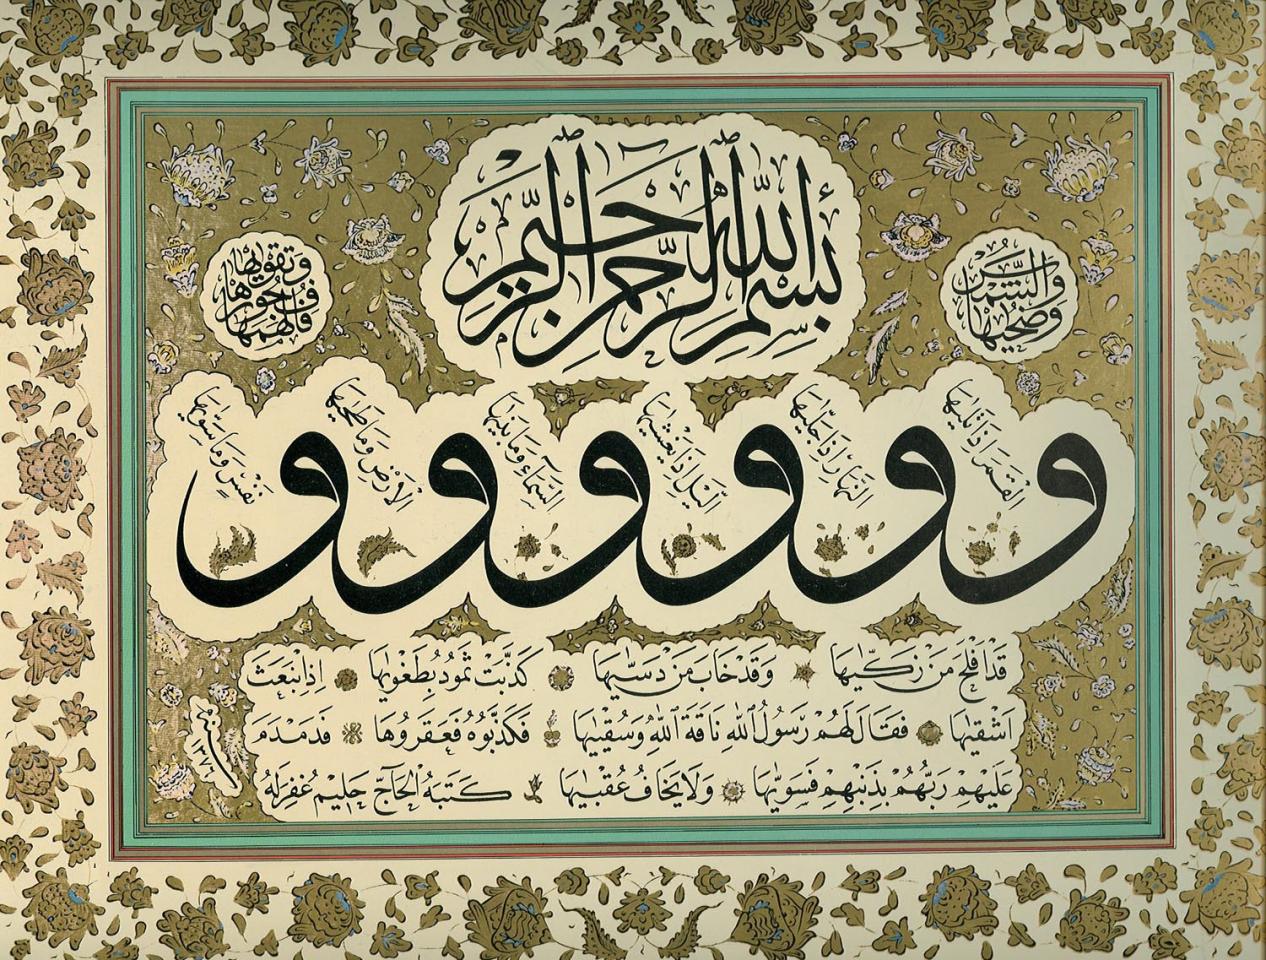 بسم الله الرحمن الرحيم
والشمس
وضحيها
و القمر اذا تليها
و النهار اذا جليها
و الليل اذا يغشيها
و السماء وما بنيها
و الارض وما طحيها
و نفس وما سويها
فالهمها
فجورها
وتقويها
قد افلح من زكيها وقد خاب من دسيها كذبت ثمود بطغويها اذ انبعث
اشقيها فقال لهم رسول الله ناقة الله وسقيها فكذبوه فعقروها فدمدم
عليهم ربهم بذنبهم فسويها ولا يخاف عقبيها كتبه الحاج حليم غفرله
سنه